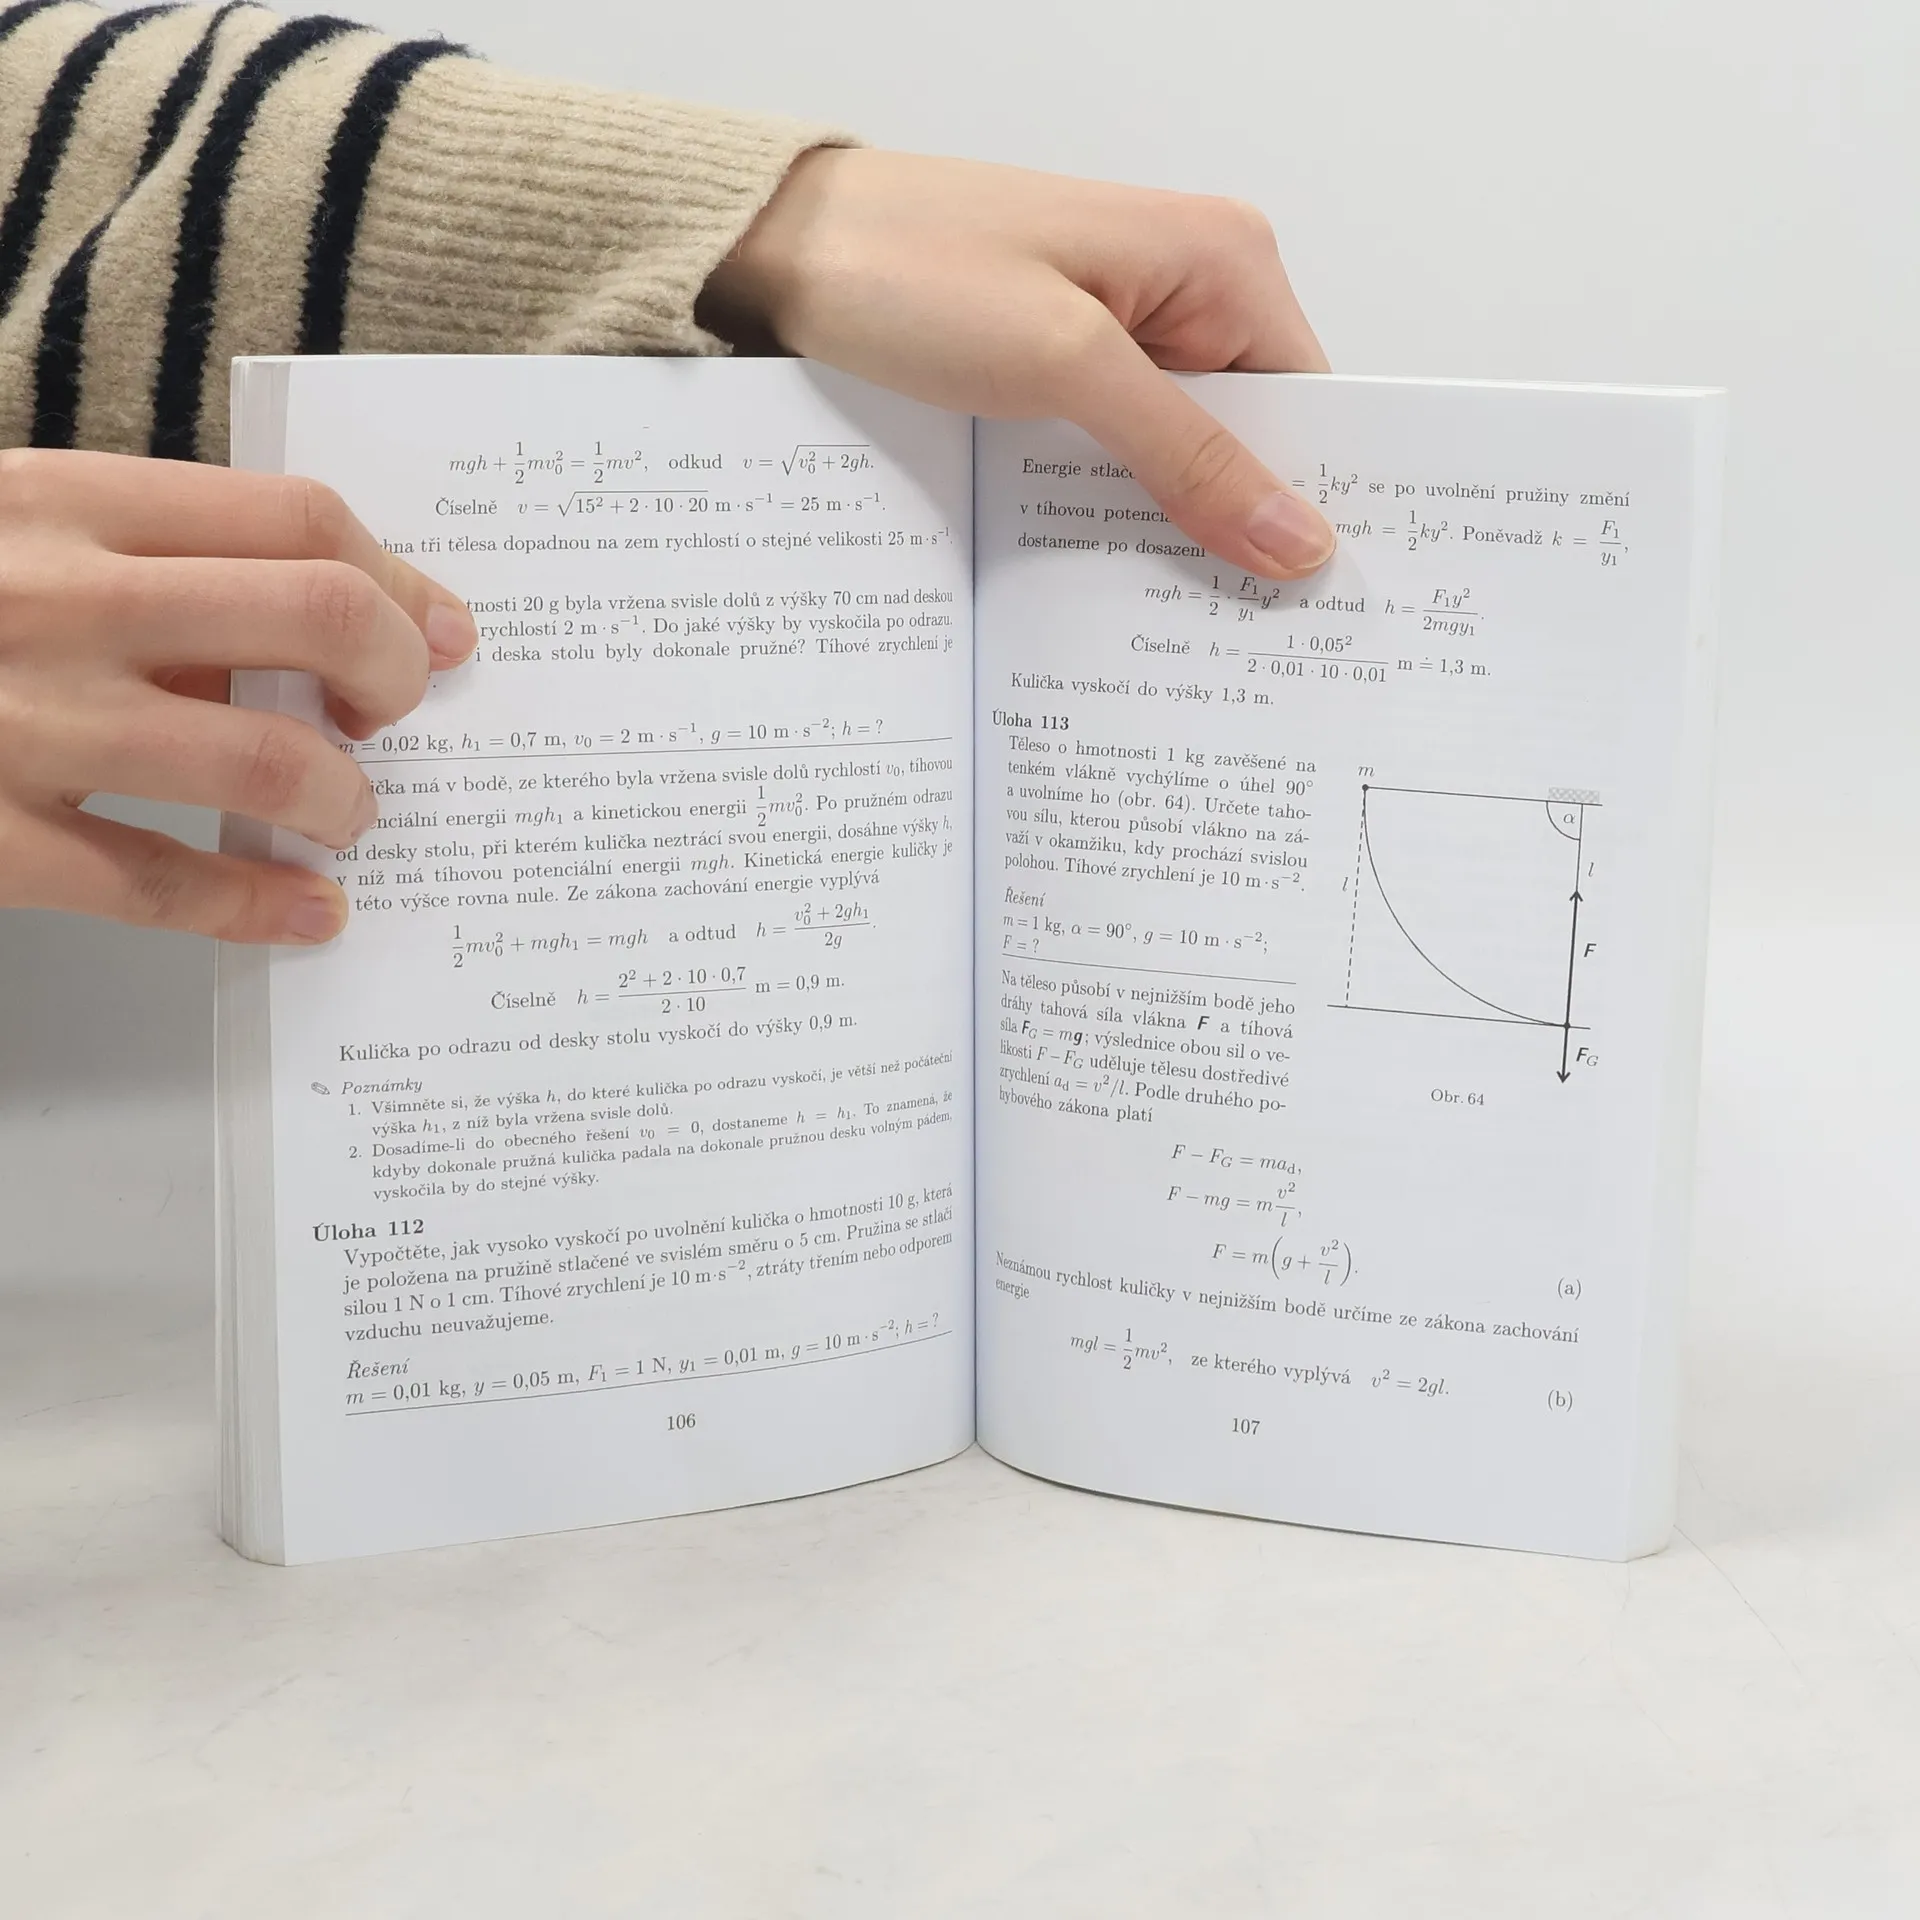 mgh + 1/2 mv₀² = 1/2 mv², odkud v = √(v₀² + 2gh).
Číselně v = √(15² + 2 · 10 · 20) m · s⁻¹ = 25 m · s⁻¹.
tři tělesa dopadnou na zem rychlostí o stejné velikosti 25 m·s⁻¹.
20 g byla vržena svisle dolů z výšky 70 cm nad deskou
rychlostí 2 m · s⁻¹. Do jaké výšky by vyskočila po odrazu,
i deska stolu byly dokonale pružné? Tíhové zrychlení je
m = 0,02 kg, h₁ = 0,7 m, v₀ = 2 m · s⁻¹, g = 10 m · s⁻²; h = ?
má v bodě, ze kterého byla vržena svisle dolů rychlostí v₀, tíhovou
energii mgh₁ a kinetickou energii 1/2 mv₀². Po pružném odrazu
od desky stolu, při kterém kulička neztrácí svou energii, dosáhne výšky h,
v níž má tíhovou potenciální energii mgh. Kinetická energie kuličky je
této výšce rovna nule. Ze zákona zachování energie vyplývá
1/2 mv₀² + mgh₁ = mgh a odtud h = (v₀² + 2gh₁)/2g.
Číselně h = (2² + 2 · 10 · 0,7)/(2 · 10) m = 0,9 m.
Kulička po odrazu od desky stolu vyskočí do výšky 0,9 m.
✎ Poznámky
1. Všimněte si, že výška h, do které kulička po odrazu vyskočí, je větší než počáteční
výška h₁, z níž byla vržena svisle dolů.
2. Dosadíme-li do obecného řešení v₀ = 0, dostaneme h = h₁. To znamená, že
kdyby dokonale pružná kulička padala na dokonale pružnou desku volným pádem,
vyskočila by do stejné výšky.
Úloha 112
Vypočtěte, jak vysoko vyskočí po uvolnění kulička o hmotnosti 10 g, která
je položena na pružině stlačené ve svislém směru o 5 cm. Pružina se stlačí
silou 1 N o 1 cm. Tíhové zrychlení je 10 m·s⁻², ztráty třením nebo odporem
vzduchu neuvažujeme.
Řešení
m = 0,01 kg, y = 0,05 m, F₁ = 1 N, y₁ = 0,01 m, g = 10 m · s⁻²; h = ?
106
Energie = 1/2 ky² se po uvolnění pružiny změní
v tíhovou mgh = 1/2 ky². Poněvadž k = F₁/y₁,
dostaneme po dosazení
mgh = 1/2 · F₁/y₁ y² a odtud h = F₁y²/2mgy₁.
Číselně h = (1 · 0,05²)/(2 · 0,01 · 10 · 0,01) m ≐ 1,3 m.
Kulička vyskočí do výšky 1,3 m.
Úloha 113
Těleso o hmotnosti 1 kg zavěšené na
tenkém vlákně vychýlíme o úhel 90°
a uvolníme ho (obr. 64). Určete taho-
vou sílu, kterou působí vlákno na zá-
važí v okamžiku, kdy prochází svislou
polohou. Tíhové zrychlení je 10 m·s⁻².
Řešení
m = 1 kg, α = 90°, g = 10 m · s⁻²;
F = ?
Na těleso působí v nejnižším bodě jeho
dráhy tahová síla vlákna F a tíhová
síla F_G = mg; výslednice obou sil o ve-
likosti F − F_G uděluje tělesu dostředivé
zrychlení a_d = v²/l. Podle druhého po-
hybového zákona platí
m
α
l
l
F
F_G
Obr. 64
F − F_G = ma_d,
F − mg = m v²/l,
F = m(g + v²/l).
(a)
Neznámou rychlost kuličky v nejnižším bodě určíme ze zákona zachování
energie
mgl = 1/2 mv², ze kterého vyplývá v² = 2gl.
(b)
107